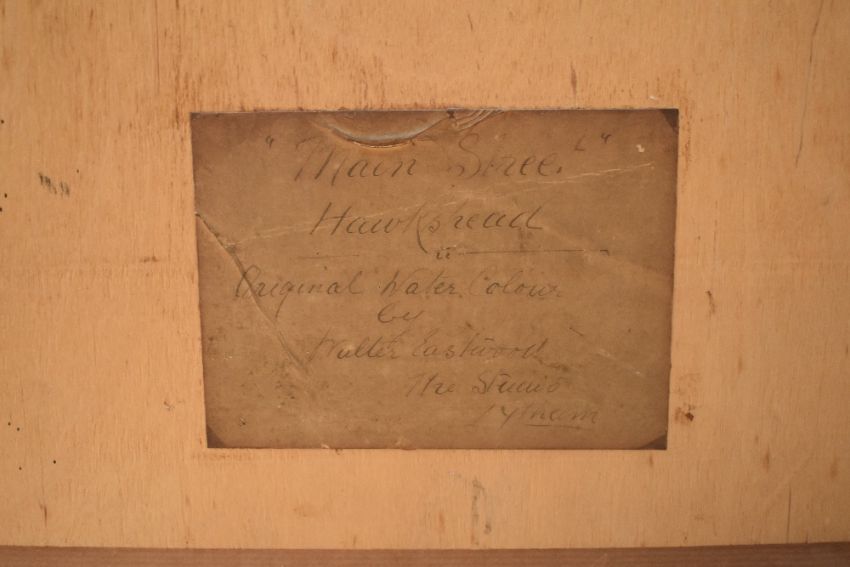 "Main Street"
Hawkshead
Original Water Colour
by
Walter Eastwood
The Studio
Lytham